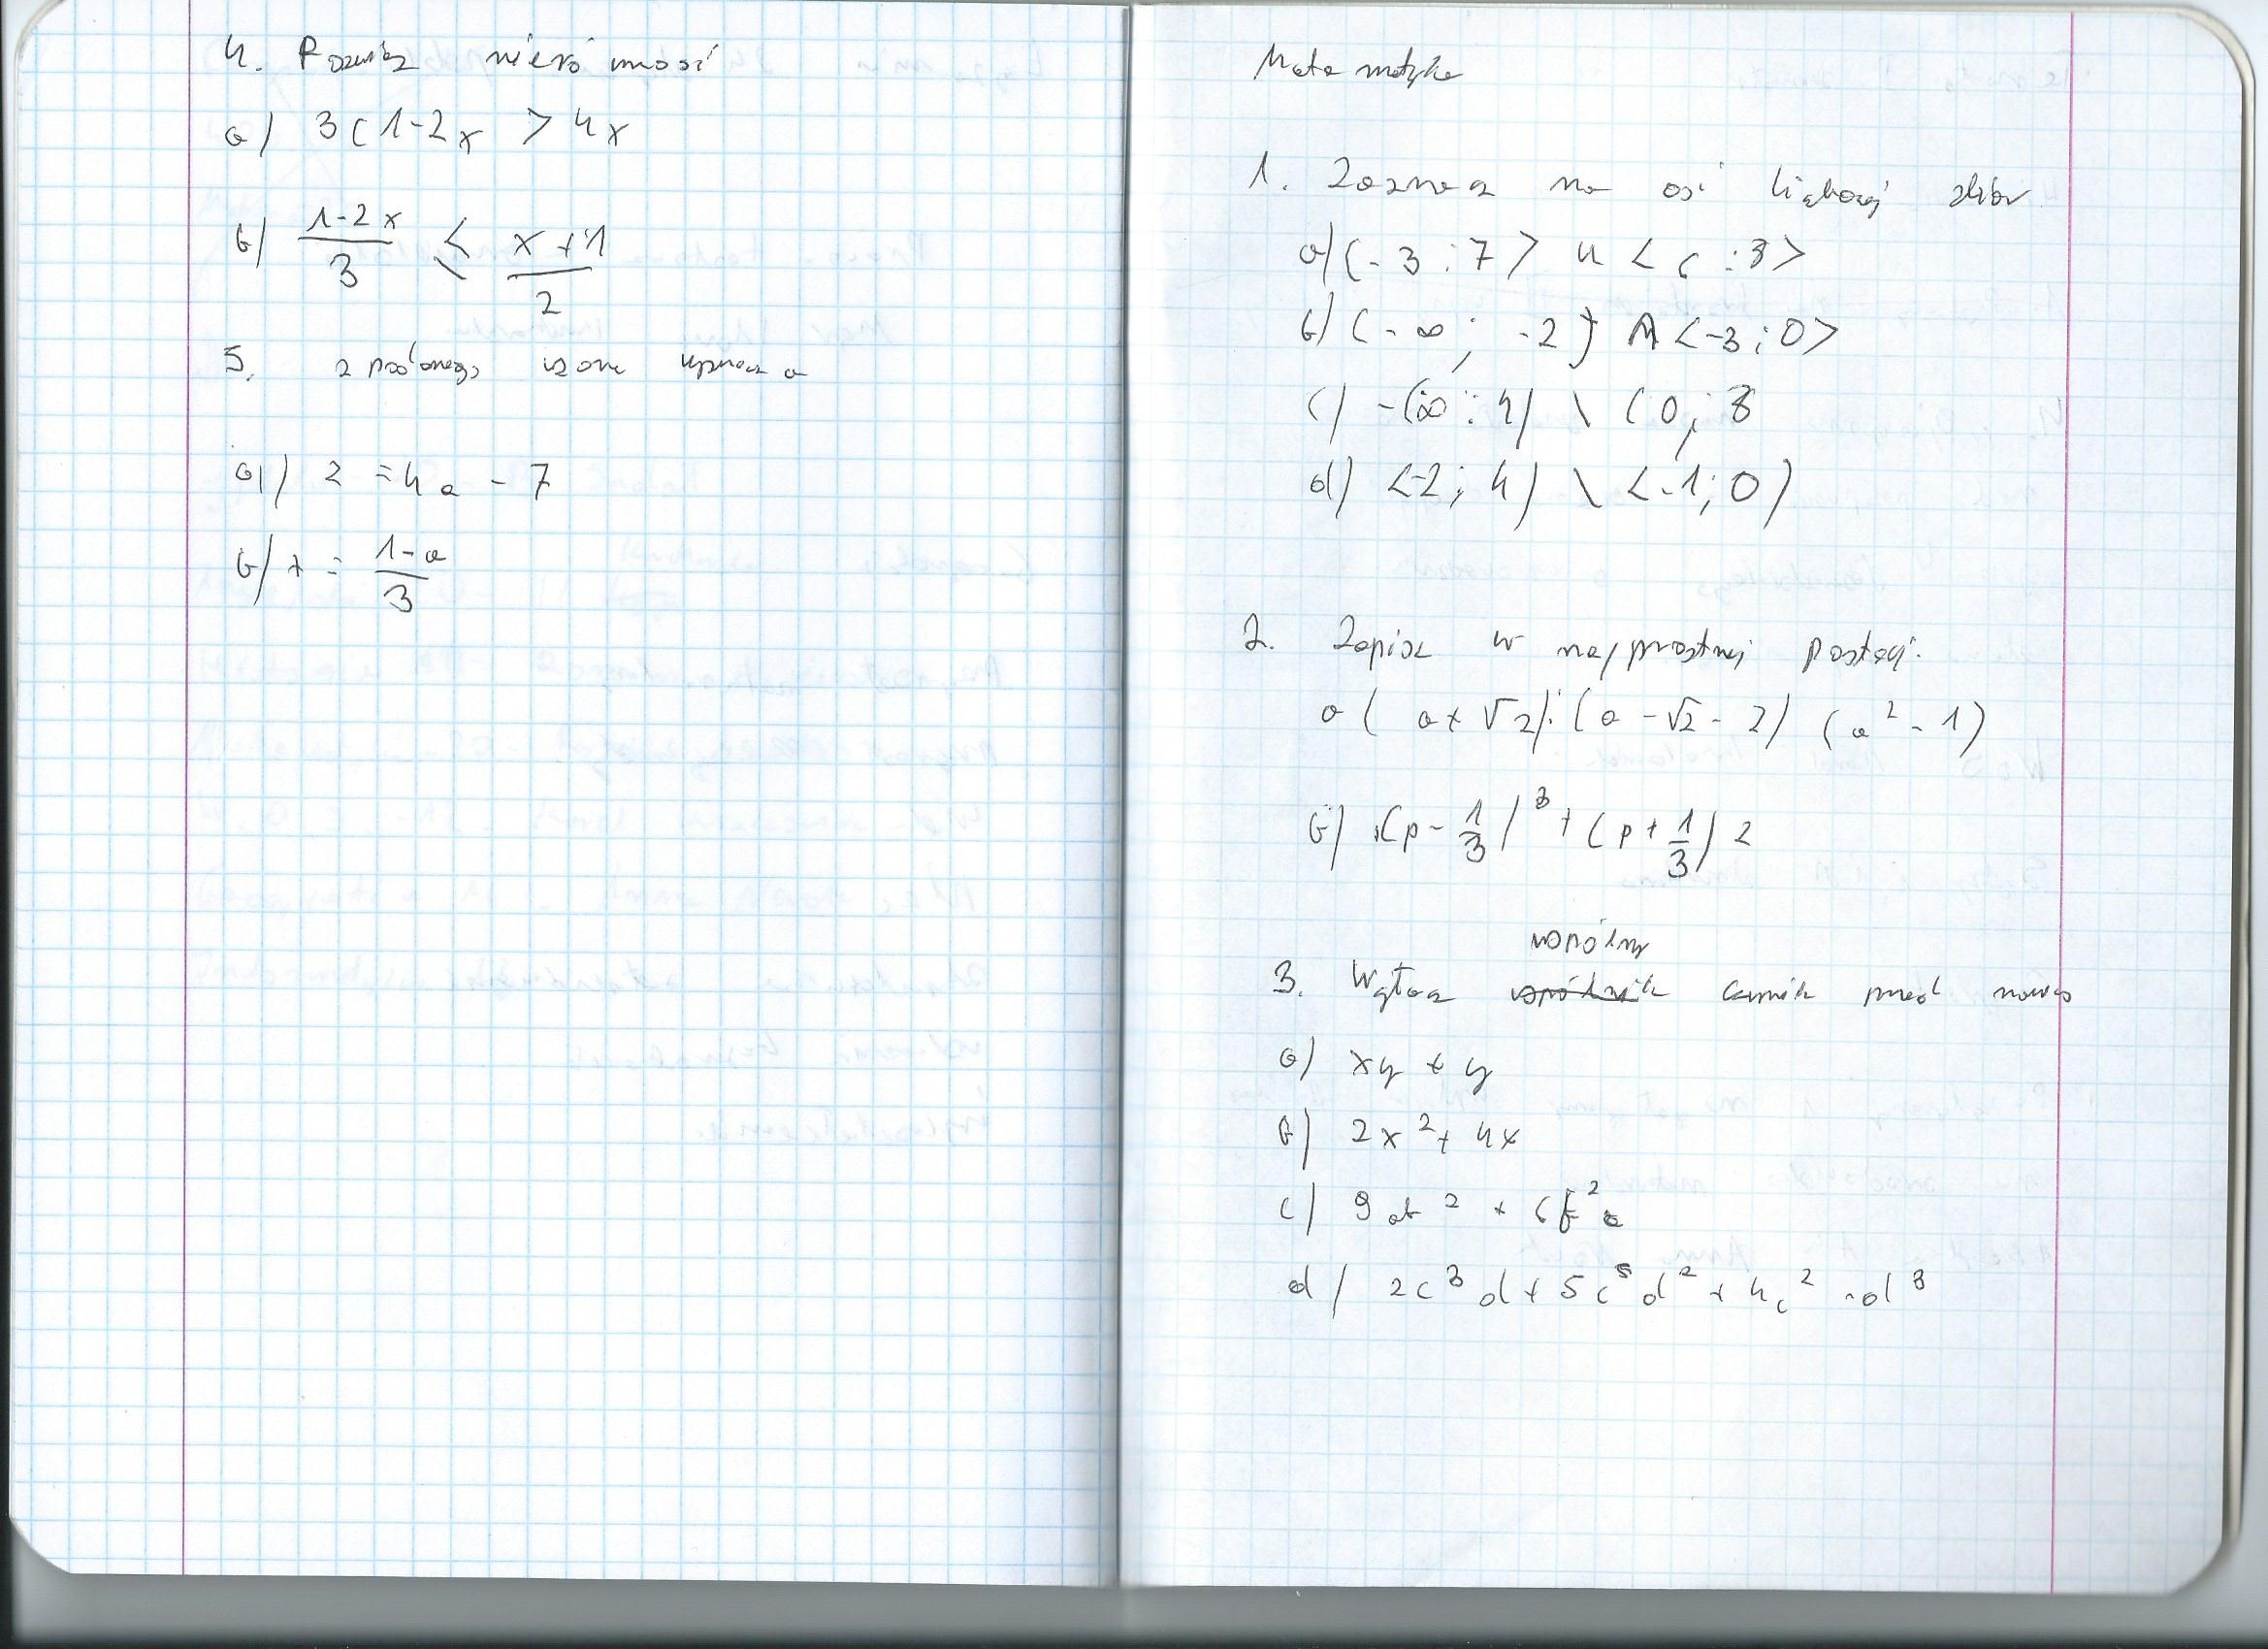 4. Rozwiąż nierównosć
a) 3(1-2x > 4x
b) \frac{1-2x}{3} ≤ \frac{x+1}{2}
5. z podanego wzoru wyznacz a
a) 2 = 4a - 7
b) x = \frac{1-a}{3}
Matematyka
1. Zaznacz na osi liczbowej zbiór
a) (-3 ; 7 > u < 6 ; 8 >
b) (-∞ ; -2) ∩ <-3 ; 0>
c) -(∞ ; 4) \ (0 ; 8
d) <-2 ; 4) \ <-1 ; 0)
2. Zapisz w najprostrzej postaci.
a( a+√2) : (a - √2 - 2) (a² - 1)
b) (p - \frac{1}{3})³ + (p + \frac{1}{3}) 2
wspólny
3. Wyłącz czynnik przed nawias
a) xy + y
b) 2x² + 4x
c) 9ab² + 6b²a
d) 2c³d + 5c⁵d² + 4c² · d³